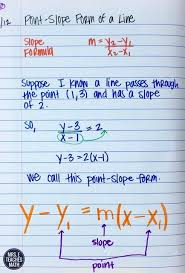 1/12 Point-Slope Form of a Line
Slope Formula m = y₂-y₁ / x₂-x₁
Suppose I know a line passes through
the point (1,3) and has a slope
of 2.
So, y-3 / x-1 = 2
y-3 = 2(x-1)
We call this point-slope form.
y - y₁ = m(x - x₁)
slope
point
MRS. E TEACHES MATH